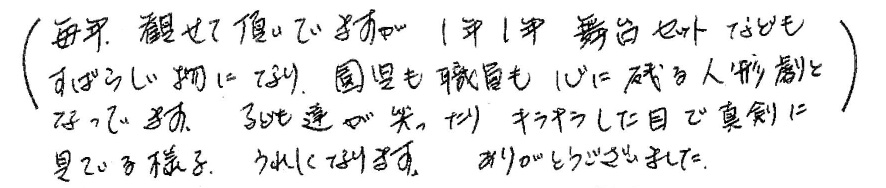 毎年、観せて頂いてますが 1年1年 舞台セットなども
すばらしい物になり、園児も職員も心に残る人形劇と
なってます。 子ども達が笑ったり キラキラした目で真剣に
見ている様子、うれしくなります。 ありがとうございました。